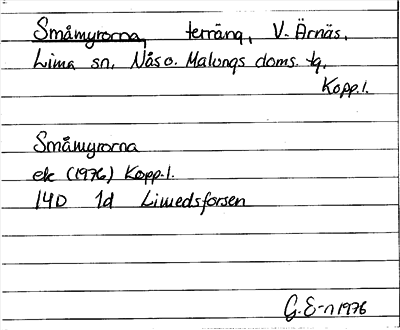 Småmyrorna, terräng, V. Ärnäs,
Lima sn, Nås o. Malungs doms. tg,
Kopp.l.
Småmyrorna
ek (1976) Kopp.l.
14D 1d Limedsforsen
G.E-n 1976